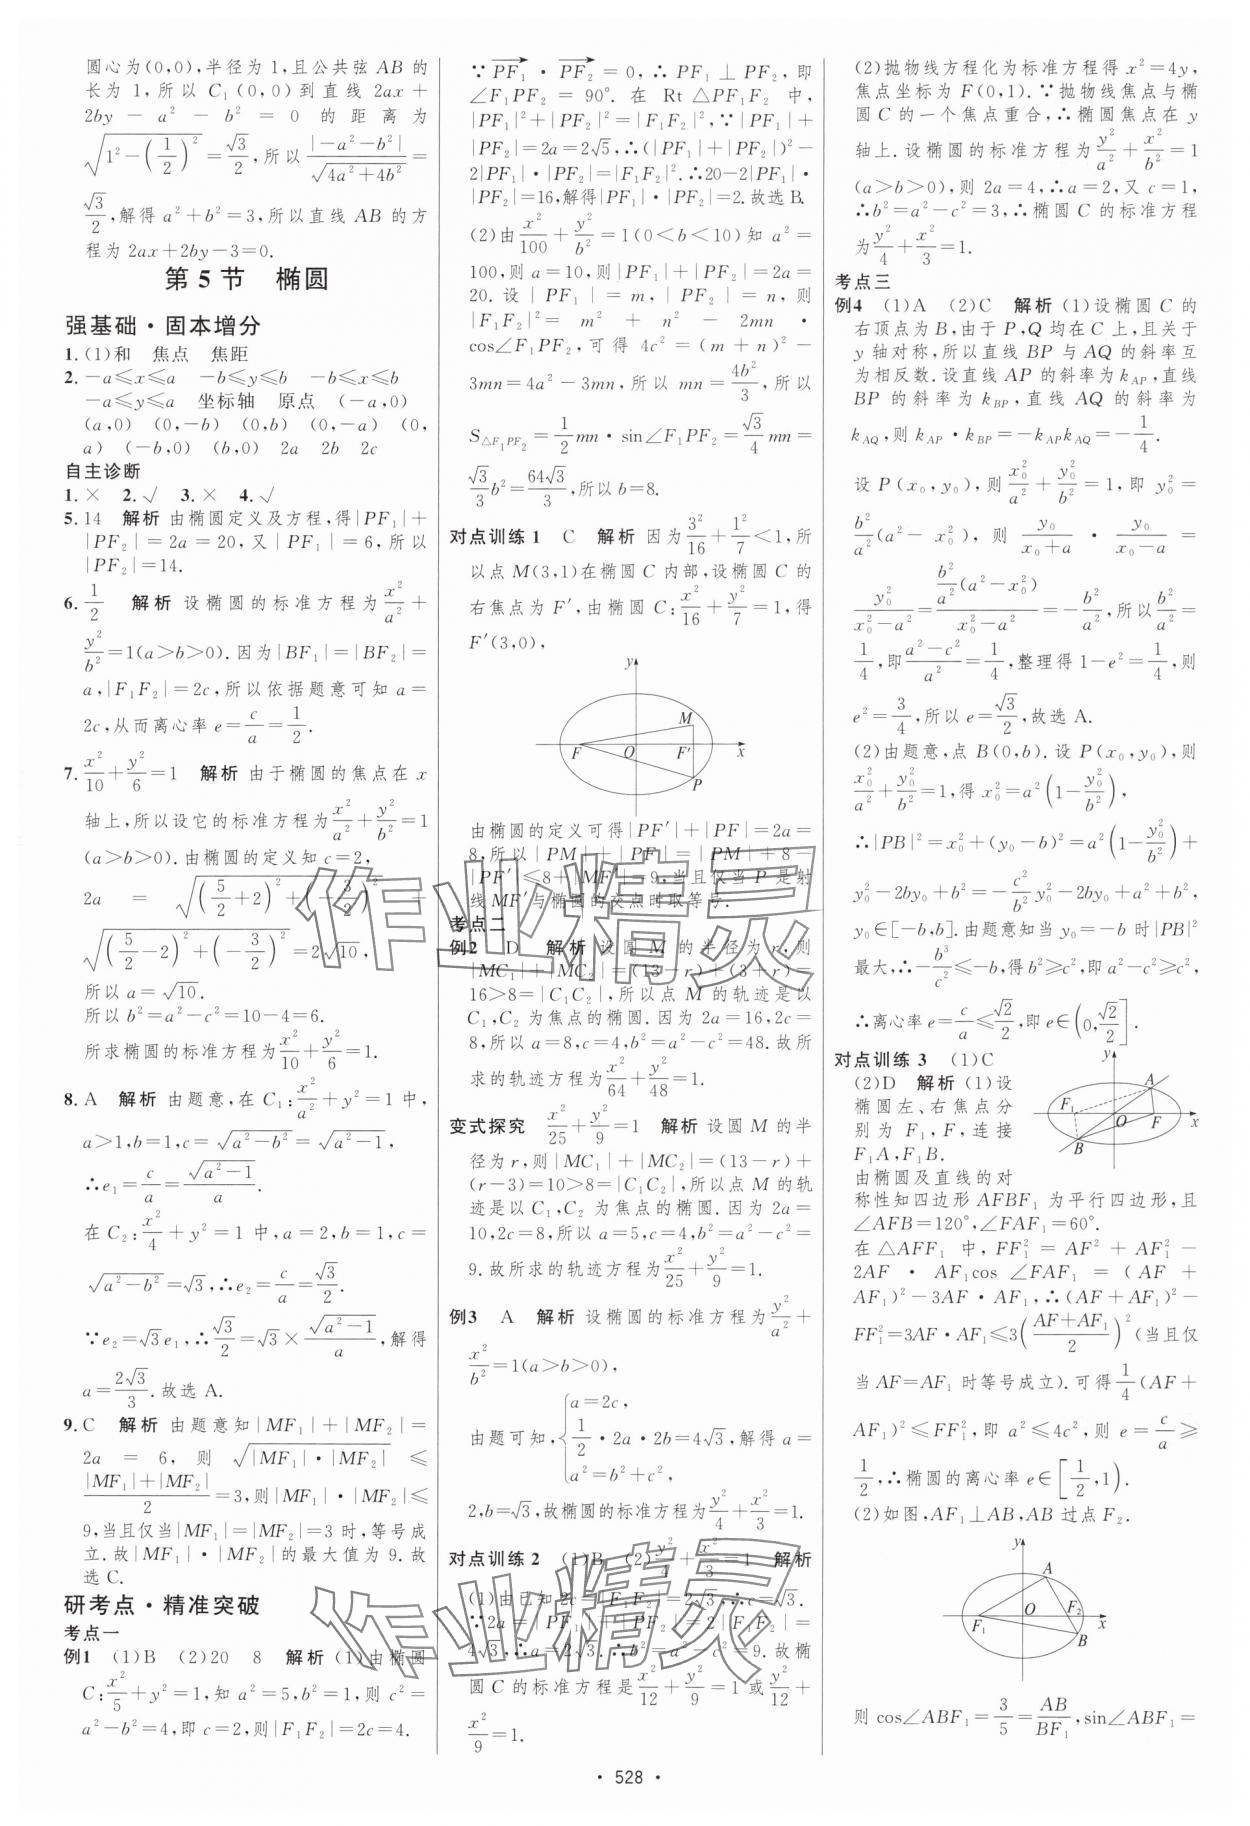 圆心为(0,0),半径为1,且公共弦AB的
长为1,所以C₁(0,0)到直线2ax+
2by-a²-b²=0的距离为
√(1²-(1/2)²)=√3/2,所以|-a²-b²|/√(4a²+4b²)=
√3/2,解得a²+b²=3,所以直线AB的方
程为2ax+2by-3=0.
第5节 椭圆
强基础·固本增分
1.(1)和 焦点 焦距
2.-a≤x≤a -b≤y≤b -b≤x≤b
-a≤y≤a 坐标轴 原点 (-a,0)
(a,0) (0,-b) (0,b) (0,-a) (0,
a) (-b,0) (b,0) 2a 2b 2c
自主诊断
1.× 2.√ 3.× 4.√
5.14 解析 由椭圆定义及方程,得|PF₁|+
|PF₂|=2a=20,又|PF₁|=6,所以
|PF₂|=14.
6.1/2 解析 设椭圆的标准方程为x²/a²+
y²/b²=1(a>b>0).因为|BF₁|=|BF₂|=
a,|F₁F₂|=2c,所以依据题意可知a=
2c,从而离心率e=c/a=1/2.
7.x²/10+y²/6=1 解析 由于椭圆的焦点在x
轴上,所以设它的标准方程为x²/a²+y²/b²=1
(a>b>0).由椭圆的定义知c=2,
2a=√((5/2+2)²+(-3/2)²)+
√((5/2-2)²+(-3/2)²)=2√10,
所以a=√10.
所以b²=a²-c²=10-4=6.
所求椭圆的标准方程为x²/10+y²/6=1.
8.A 解析 由题意,在C₁:x²/a²+y²=1中,
a>1,b=1,c=√(a²-b²)=√(a²-1),
∴e₁=c/a=√(a²-1)/a.
在C₂:x²/4+y²=1中,a=2,b=1,c=
√(a²-b²)=√3,∴e₂=c/a=√3/2.
∵e₂=√3e₁,∴√3/2=√3×√(a²-1)/a,解得
a=2√3/3.故选A.
9.C 解析 由题意知|MF₁|+|MF₂|=
2a=6,则√(|MF₁|·|MF₂|)≤
(|MF₁|+|MF₂|)/2=3,则|MF₁|·|MF₂|≤
9,当且仅当|MF₁|=|MF₂|=3时,等号成
立.故|MF₁|·|MF₂|的最大值为9.故
选C.
研考点·精准突破
考点一
例1 (1)B (2)20 8 解析 (1)由椭圆
C:x²/5+y²=1,知a²=5,b²=1,则c²=
a²-b²=4,即c=2,则|F₁F₂|=2c=4.
∵PF₁·PF₂=0,∴PF₁⊥PF₂,即
∠F₁PF₂=90°.在Rt△PF₁F₂中,
|PF₁|²+|PF₂|²=|F₁F₂|²,∵|PF₁|+
|PF₂|=2a=2√5,∴(|PF₁|+|PF₂|)²-
2|PF₁|·|PF₂|=|F₁F₂|².∴20-2|PF₁|·
|PF₂|=16,解得|PF₁|·|PF₂|=2.故选B.
(2)由x²/100+y²/b²=1(0<b<10)知a²=
100,则a=10,则|PF₁|+|PF₂|=2a=
20.设|PF₁|=m,|PF₂|=n,则
|F₁F₂|²=m²+n²-2mn·
cos∠F₁PF₂,可得4c²=(m+n)²-
3mn=4a²-3mn,所以mn=4b²/3,所以
S△F₁PF₂=1/2mn·sin∠F₁PF₂=√3/4mn=
√3/3b²=64√3/3,所以b=8.
对点训练1 C 解析 因为3²/16+1²/7<1,所
以点M(3,1)在椭圆C内部,设椭圆C的
右焦点为F′,由椭圆C:x²/16+y²/7=1,得
F′(3,0),
y
M
F O F′ x
P
由椭圆的定义可得|PF′|+|PF|=2a=
8,所以|PM|+|PF|=|PM|+8-
|PF′|≤8+|MF′|=9,当且仅当P是射
线MF′与椭圆的交点时取等号.
考点二
例2 D 解析 设圆M的半径为r,则
|MC₁|+|MC₂|=(13-r)+(3+r)=
16>8=|C₁C₂|,所以点M的轨迹是以
C₁,C₂为焦点的椭圆.因为2a=16,2c=
8,所以a=8,c=4,b²=a²-c²=48.故所
求的轨迹方程为x²/64+y²/48=1.
变式探究 x²/25+y²/9=1 解析 设圆M的半
径为r,则|MC₁|+|MC₂|=(13-r)+
(r-3)=10>8=|C₁C₂|,所以点M的轨
迹是以C₁,C₂为焦点的椭圆.因为2a=
10,2c=8,所以a=5,c=4,b²=a²-c²=
9.故所求的轨迹方程为x²/25+y²/9=1.
例3 A 解析 设椭圆的标准方程为y²/a²+
x²/b²=1(a>b>0),
由题可知,{a=2c, 1/2·2a·2b=4√3, a²=b²+c²,解得a=
2,b=√3,故椭圆的标准方程为y²/4+x²/3=1.
对点训练2 (1)B (2)y²/4+x²/3=1 解析
(1)由已知2c=|F₁F₂|=2√3,∴c=√3.
∵2a=|PF₁|+|PF₂|=2|F₁F₂|=
4√3,∴a=2√3.∴b²=a²-c²=9.故椭
圆C的标准方程是x²/12+y²/9=1或y²/12+
x²/9=1.
(2)抛物线方程化为标准方程得x²=4y,
焦点坐标为F(0,1).∵抛物线焦点与椭
圆C的一个焦点重合,∴椭圆焦点在y
轴上.设椭圆的标准方程为y²/a²+x²/b²=1
(a>b>0),则2a=4,∴a=2,又c=1,
∴b²=a²-c²=3,∴椭圆C的标准方程
为y²/4+x²/3=1.
考点三
例4 (1)A (2)C 解析 (1)设椭圆C的
右顶点为B,由于P,Q均在C上,且关于
y轴对称,所以直线BP与AQ的斜率互
为相反数.设直线AP的斜率为kAP,直线
BP的斜率为kBP,直线AQ的斜率为
kAQ,则kAP·kBP=-kAPkAQ=-1/4.
设P(x₀,y₀),则x₀²/a²+y₀²/b²=1,即y₀²=
b²/a²(a²-x₀²),则y₀/(x₀+a)·y₀/(x₀-a)=
y₀²/(x₀²-a²)=(b²/a²(a²-x₀²))/(x₀²-a²)=-b²/a²,所以b²/a²=
1/4,即(a²-c²)/a²=1/4,整理得1-e²=1/4,则
e²=3/4,所以e=√3/2,故选A.
(2)由题意,点B(0,b).设P(x₀,y₀),则
x₀²/a²+y₀²/b²=1,得x₀²=a²(1-y₀²/b²),
∴|PB|²=x₀²+(y₀-b)²=a²(1-y₀²/b²)+
y₀²-2by₀+b²=-c²/b²y₀²-2by₀+a²+b²,
y₀∈[-b,b].由题意知当y₀=-b时|PB|²
最大,∴-b³/c²≤-b,得b²≥c²,即a²-c²≥c²,
∴离心率e=c/a≤√2/2,即e∈(0,√2/2].
对点训练3 (1)C
(2)D 解析 (1)设
椭圆左、右焦点分
别为F₁,F,连接
F₁A,F₁B.
y
A
F₁ O F x
B
由椭圆及直线的对
称性知四边形AFBF₁为平行四边形,且
∠AFB=120°,∠FAF₁=60°.
在△AFF₁中,FF₁²=AF²+AF₁²-
2AF·AF₁cos∠FAF₁=(AF+
AF₁)²-3AF·AF₁,∴(AF+AF₁)²-
FF₁²=3AF·AF₁≤3((AF+AF₁)/2)²(当且仅
当AF=AF₁时等号成立).可得1/4(AF+
AF₁)²≤FF₁²,即a²≤4c²,则e=c/a≥
1/2,∴椭圆的离心率e∈[1/2,1).
(2)如图,AF₁⊥AB,AB过点F₂.
y
A
F₁ O F₂ x
B
则cos∠ABF₁=3/5=AB/BF₁,sin∠ABF₁=
·528·
作业精灵
作业精灵